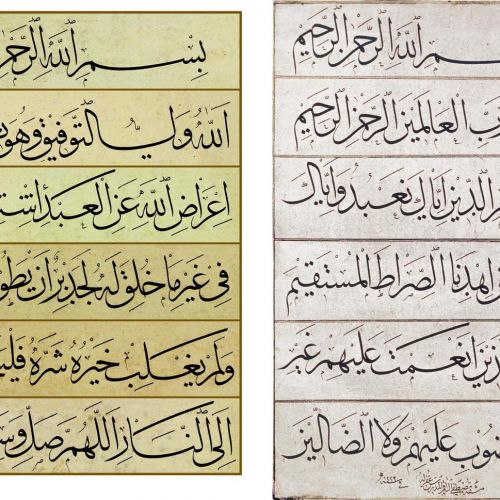 سم الله الرحمن الرحيم
ب العالمين الرحمن الرحيم
م الدين اياك نعبد واياك
اهدنا الصراط المستقيم
ذين انعمت عليهم غير
ضوب عليهم ولا الضالين
بسم الله الرحمن
الله ولي التوفيق وهو
اعراض الله عن العبد اشت
في غير ما خلق له لجدير ان يطو
ولم يغلب خيره شره فلي
الى النار اللهم صل وس